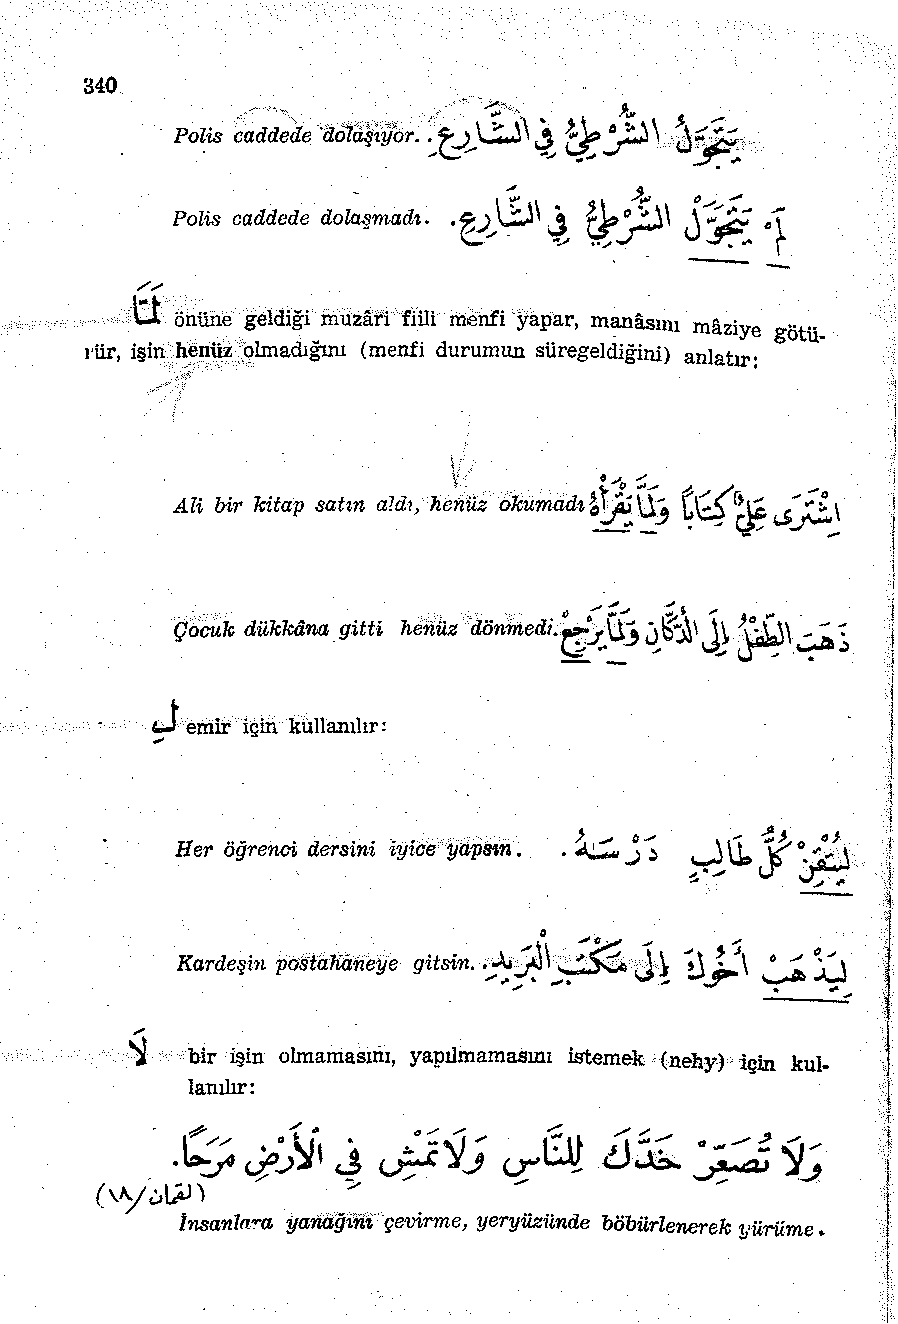 340
Polis caddede dolaşıyor. يَتَجَوَّلُ الشُّرْطِيُّ فِي الشَّارِعِ.
Polis caddede dolaşmadı. لَمْ يَتَجَوَّلْ الشُّرْطِيُّ فِي الشَّارِعِ.
لَمَّا önüne geldiği muzâri fiili menfi yapar, manâsını mâziye götü-
rür, işin henüz olmadığını (menfi durumun süregeldiğini) anlatır:
Ali bir kitap satın aldı, henüz okumadı اِشْتَرَى عَلِيٌّ كِتَاباً وَلَمَّا يَقْرَأْهُ
Çocuk dükkâna gitti henüz dönmedi. ذَهَبَ الطِّفْلُ إِلَى الدُّكَّانِ وَلَمَّا يَرْجِعْ
لِ emir için kullanılır:
Her öğrenci dersini iyice yapsın. لِيُتْقِنْ كُلُّ طَالِبٍ دَرْسَهُ.
Kardeşin postahaneye gitsin. لِيَذْهَبْ أَخُوكَ إِلَى مَكْتَبِ الْبَرِيدِ.
لَا bir işin olmamasını, yapılmamasını istemek (nehy) için kul-
lanılır:
وَلَا تُصَعِّرْ خَدَّكَ لِلنَّاسِ وَلَا تَمْشِ فِي الْأَرْضِ مَرَحًا.
(لقمان/١٨)
İnsanlara yanağını çevirme, yeryüzünde böbürlenerek yürüme.